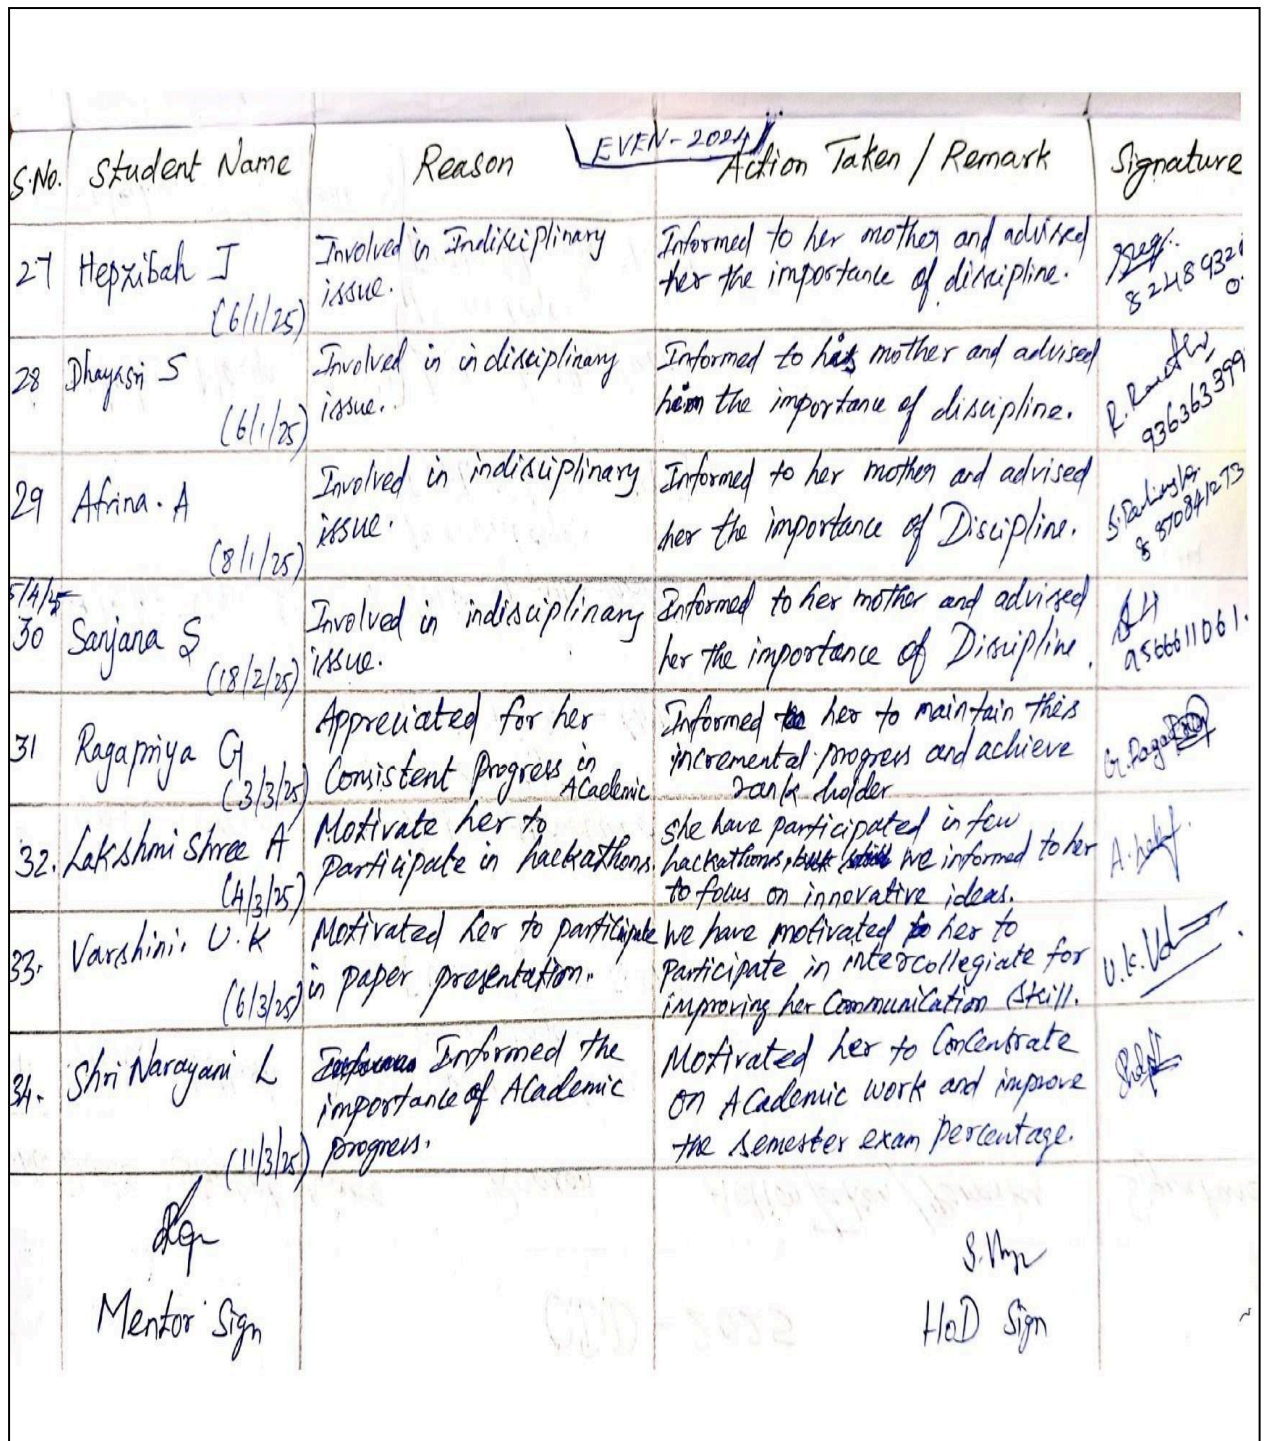 EVEN-2024
S.No. Student Name Reason Action Taken / Remark Signature
27 Hepzibah J
(6/1/25)
Involved in Indisciplinary
issue.
Informed to her mother and advised
her the importance of discipline.
28 Dhayasri S
(6/1/25)
Involved in indisciplinary
issue.
Informed to his mother and advised
him the importance of discipline.
29 Afrina. A
(8/1/25)
Involved in indisciplinary
issue.
Informed to her mother and advised
her the importance of Discipline.
5/4/25
30 Sanjana S
(18/2/25)
Involved in indisciplinary
issue.
Informed to her mother and advised
her the importance of Discipline.
9566611061.
31 Ragapriya G
(3/3/25)
Appreciated for her
Consistent Progress in
Academic
Informed her to maintain this
incremental progress and achieve
rank holder
32. Lakshmi Shree A
(4/3/25)
Motivate her to
Participate in hackathons.
She have participated in few
hackathons, we informed to her
to focus on innovative ideas.
33. Varshini. U.K
(6/3/25)
Motivated her to participate
in paper presentation.
We have motivated her to
Participate in intercollegiate for
improving her Communication Skill.
34. Shri Narayani L
(11/3/25)
Informed the
importance of Academic
progress.
Motivated her to Concentrate
on Academic work and improve
the semester exam percentage.
Mentor Sign
HoD Sign